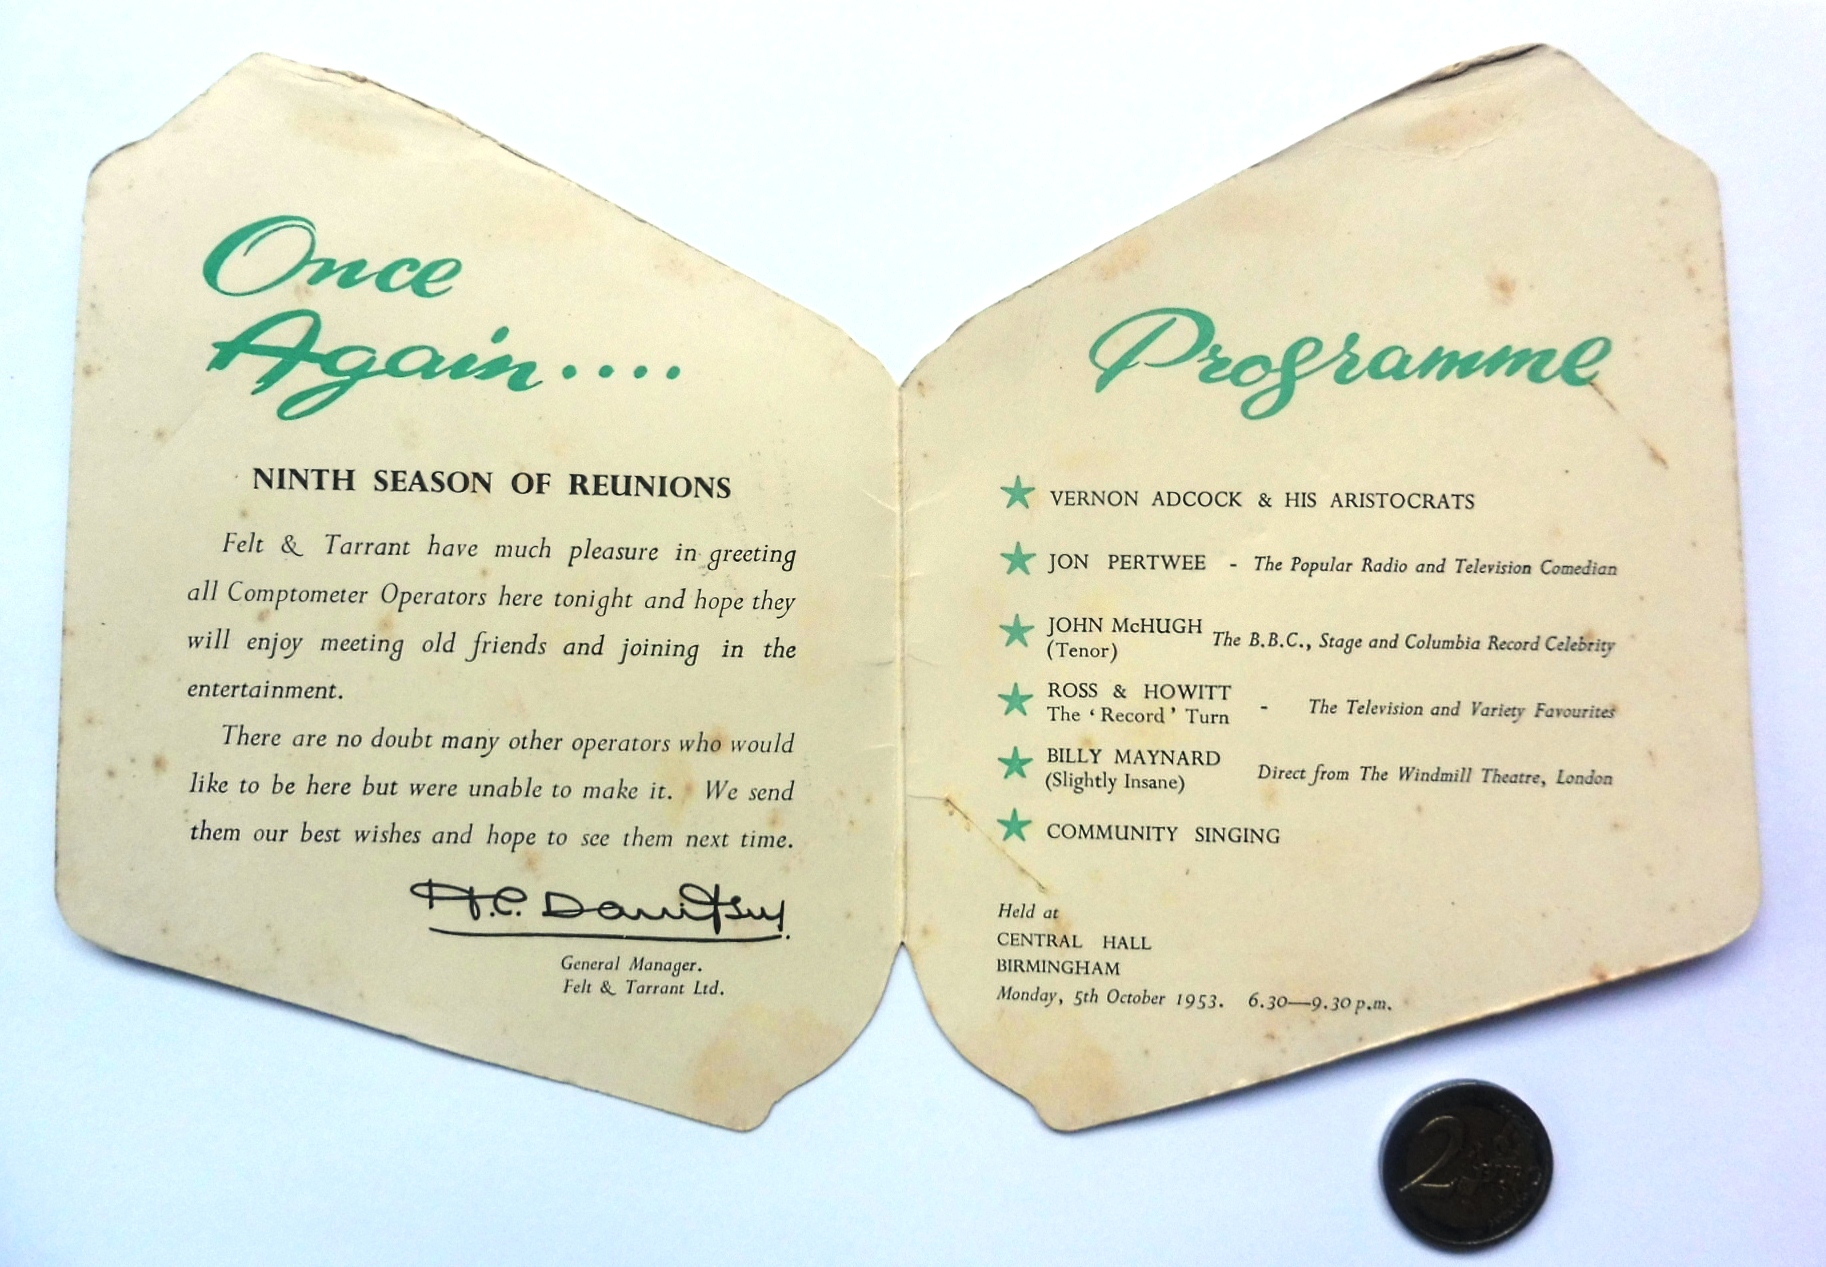 Once
Again....
NINTH SEASON OF REUNIONS
Felt & Tarrant have much pleasure in greeting
all Comptometer Operators here tonight and hope they
will enjoy meeting old friends and joining in the
entertainment.
There are no doubt many other operators who would
like to be here but were unable to make it. We send
them our best wishes and hope to see them next time.
General Manager.
Felt & Tarrant Ltd.
Programme
VERNON ADCOCK & HIS ARISTOCRATS
JON PERTWEE - The Popular Radio and Television Comedian
JOHN McHUGH The B.B.C., Stage and Columbia Record Celebrity
(Tenor)
ROSS & HOWITT - The Television and Variety Favourites
The 'Record' Turn
BILLY MAYNARD Direct from The Windmill Theatre, London
(Slightly Insane)
COMMUNITY SINGING
Held at
CENTRAL HALL
BIRMINGHAM
Monday, 5th October 1953. 6.30—9.30 p.m.
2